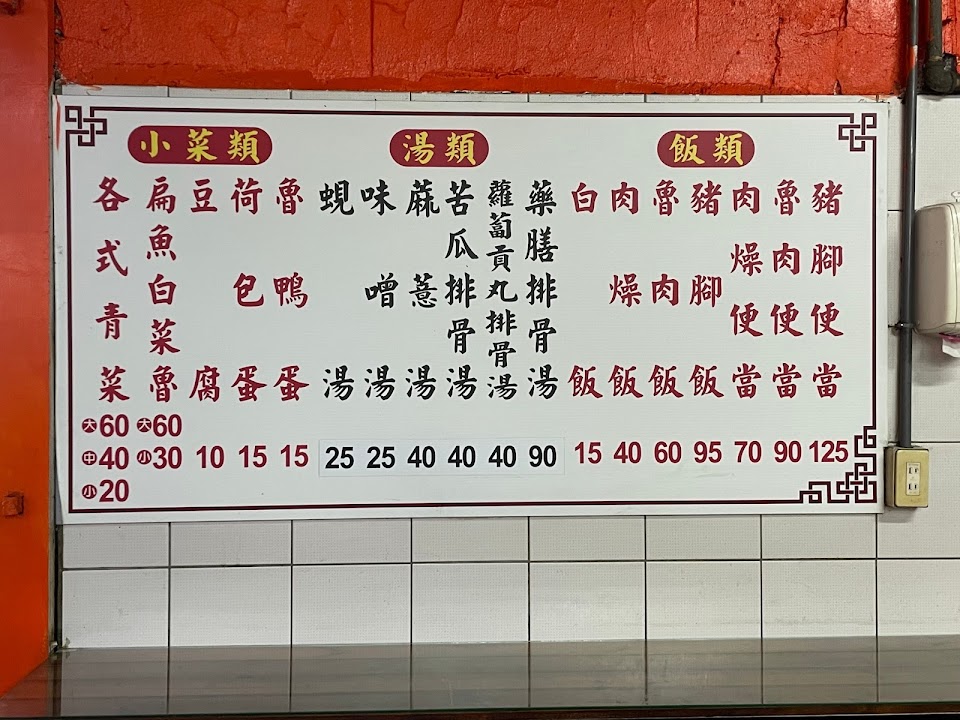 小菜類
各式青菜
大60
中40
小20
扁魚白菜魯
大60
小30
豆腐
10
荷包蛋
15
魯鴨蛋
15
湯類
蜆湯
25
味噌湯
25
蔴薏湯
40
苦瓜排骨湯
40
蘿蔔貢丸排骨湯
40
藥膳排骨湯
90
飯類
白飯
15
肉燥飯
40
魯肉飯
60
豬腳飯
95
肉燥便當
70
魯肉便當
90
豬腳便當
125